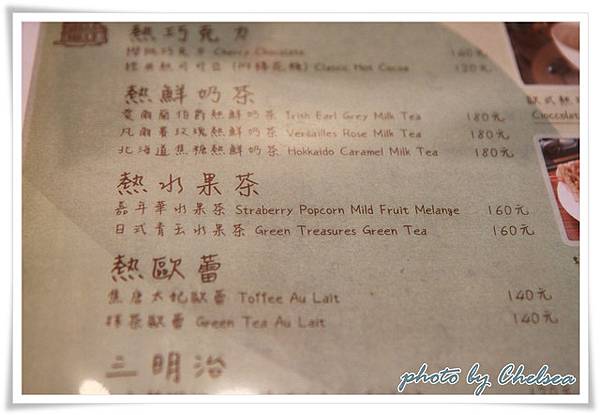 熱巧克力
櫻桃巧克力 Cherry Chocolate 160元
經典熱可可豆(附棉花糖) Classic Hot Cocoa 120元
熱鮮奶茶
愛爾蘭伯爵熱鮮奶茶 Irish Earl Grey Milk Tea 180元
凡爾賽玫瑰熱鮮奶茶 Versailles Rose Milk Tea 180元
北海道焦糖熱鮮奶茶 Hokkaido Caramel Milk Tea 180元
熱水果茶
嘉年華水果茶 Straberry Popcorn Mild Fruit Melange 160元
日式青玉水果茶 Green Treasures Green Tea 160元
熱歐蕾
焦唐太妃歐蕾 Toffee Au Lait 140元
抹茶歐蕾 Green Tea Au Lait 140元
三明治
歐式熱
Cioccolat
photo by Chelsea